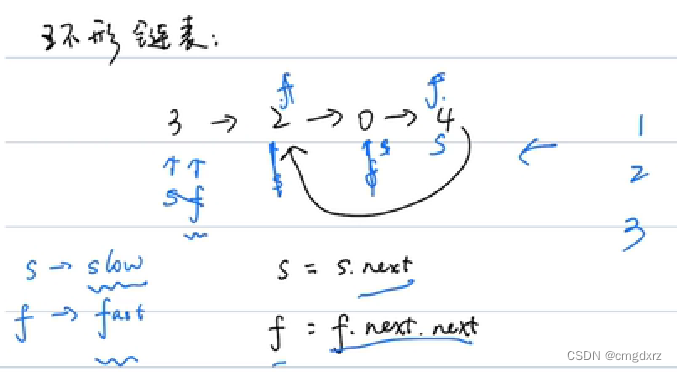 环形链表:
f f
3 → 2 → 0 → 4 1
↑ ↑ s s ← 2
s f 3
s → slow s = s.next
f → fast f = f.next.next
CSDN @cmgdxrz